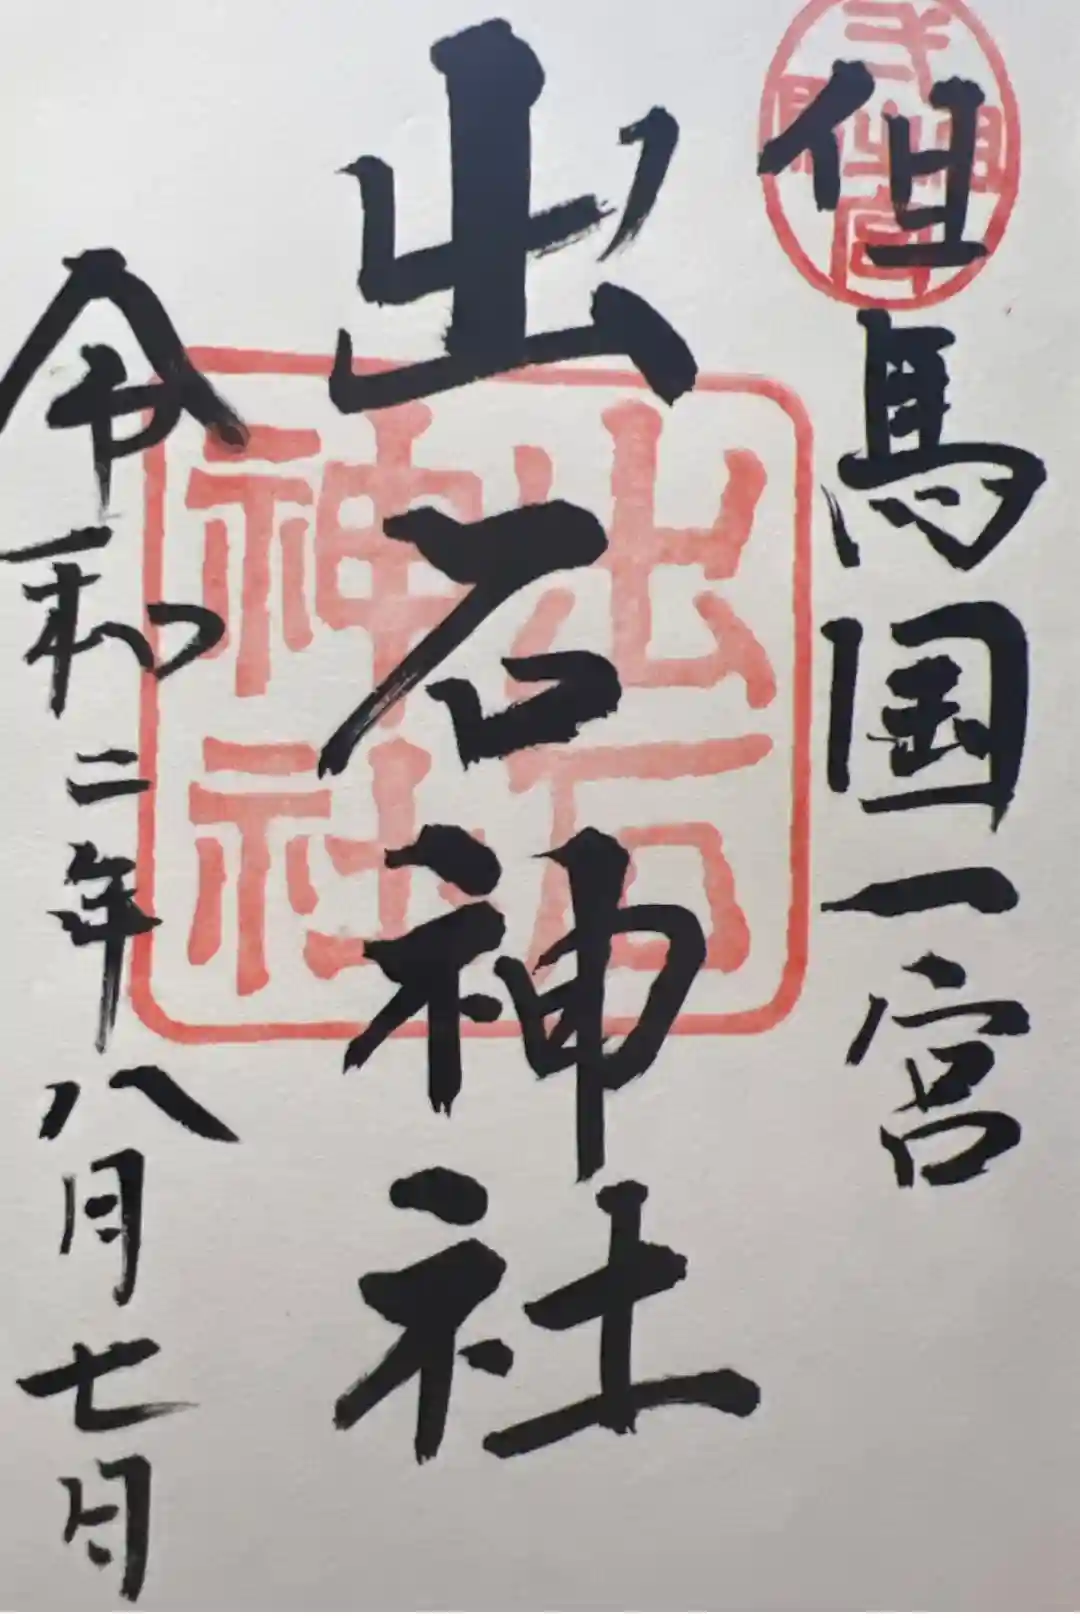 但馬国一宮
出石神社
令和二年八月七日
出石
神社